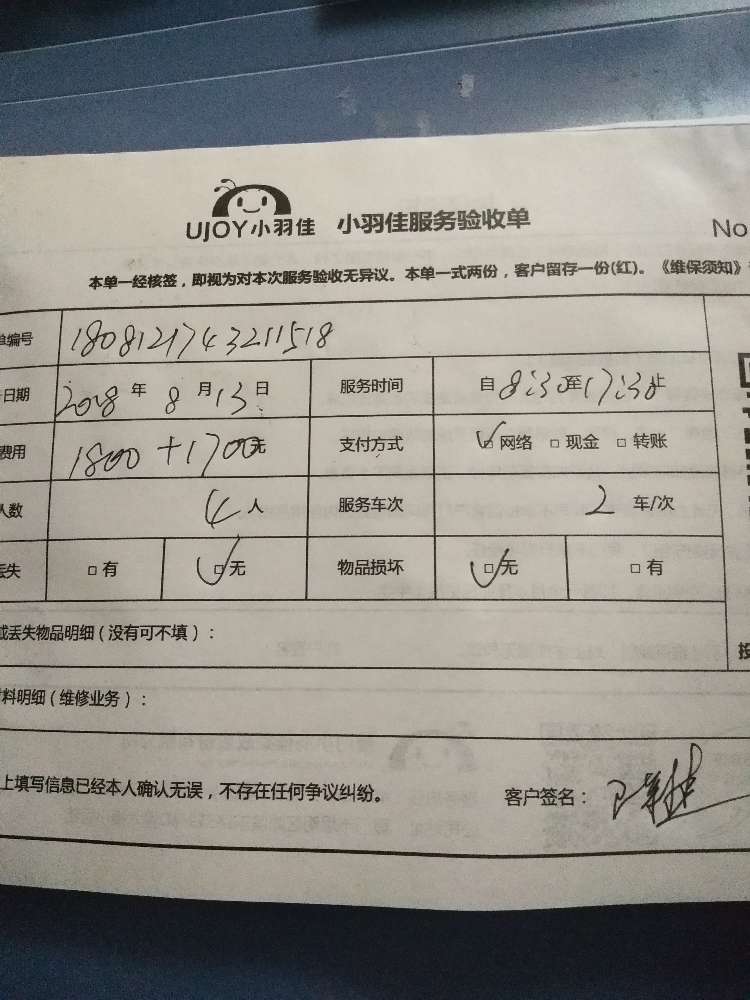 UJOY小羽佳 小羽佳服务验收单 No
本单一经核签，即视为对本次服务验收无异议。本单一式两份，客户留存一份(红)。《维保须知》
单编号 1808121743211518
日期 2018年8月13日 服务时间 自8:30至17:30止
费用 1800+1700元 支付方式 ☑网络 □现金 □转账
人数 4人 服务车次 2车/次
丢失 □有 ☑无 物品损坏 ☑无 □有
或丢失物品明细（没有可不填）：
材料明细（维修业务）：
上填写信息已经本人确认无误，不存在任何争议纠纷。 客户签名：